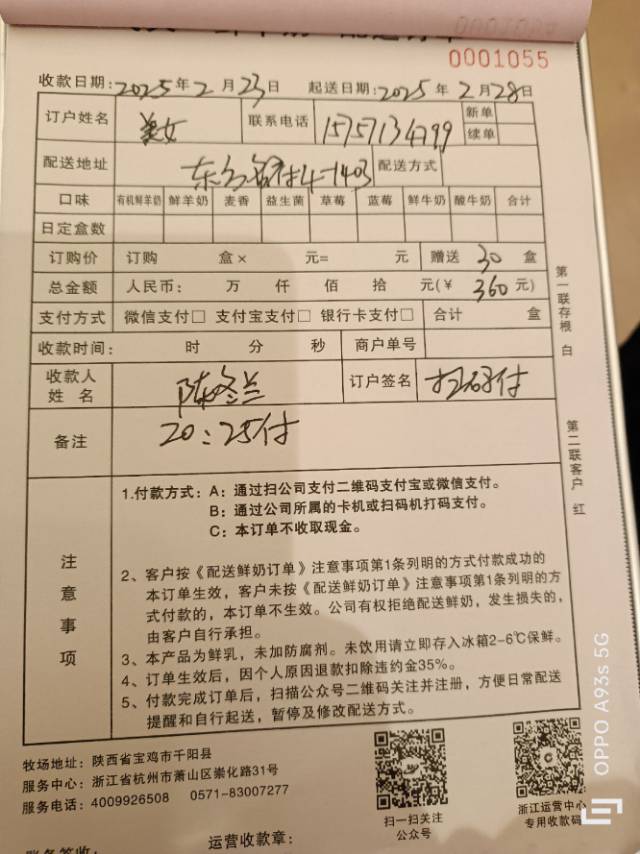 0001055
收款日期:2025年2月23日 起送日期:2025年2月28日
订户姓名 美女 联系电话 15757134799 新单
续单
配送地址 4-1403 配送方式
口味 有机鲜羊奶 鲜羊奶 麦香 益生菌 草莓 蓝莓 鲜牛奶 酸牛奶 合计
日定盒数
订购价 订购 盒× 元= 元 赠送 30 盒
总金额 人民币: 万 仟 佰 拾 元(¥ 360 元)
支付方式 微信支付□ 支付宝支付□ 银行卡支付□ 合计 盒
收款时间: 时 分 秒 商户单号
收款人
姓名 陈冬兰 订户签名 扫码付
备注 20:25付
第一联存根 白
第二联客户 红
注意事项
1.付款方式: A: 通过扫公司支付二维码支付宝或微信支付。
B: 通过公司所属的卡机或扫码机打码支付。
C: 本订单不收取现金。
2、客户按《配送鲜奶订单》注意事项第1条列明的方式付款成功的
本订单生效，客户未按《配送鲜奶订单》注意事项第1条列明的方
式付款的，本订单不生效。公司有权拒绝配送鲜奶，发生损失的，
由客户自行承担。
3、本产品为鲜乳，未加防腐剂。未饮用请立即存入冰箱2-6℃保鲜。
4、订单生效后，因个人原因退款扣除违约金35%。
5、付款完成订单后，扫描公众号二维码关注并注册，方便日常配送
提醒和自行起送，暂停及修改配送方式。
牧场地址: 陕西省宝鸡市千阳县
服务中心: 浙江省杭州市萧山区崇化路31号
服务电话: 4009926508 0571-83007277
扫一扫关注
公众号
浙江运营中心
专用收款码
运营收款章:
OPPO A93s 5G